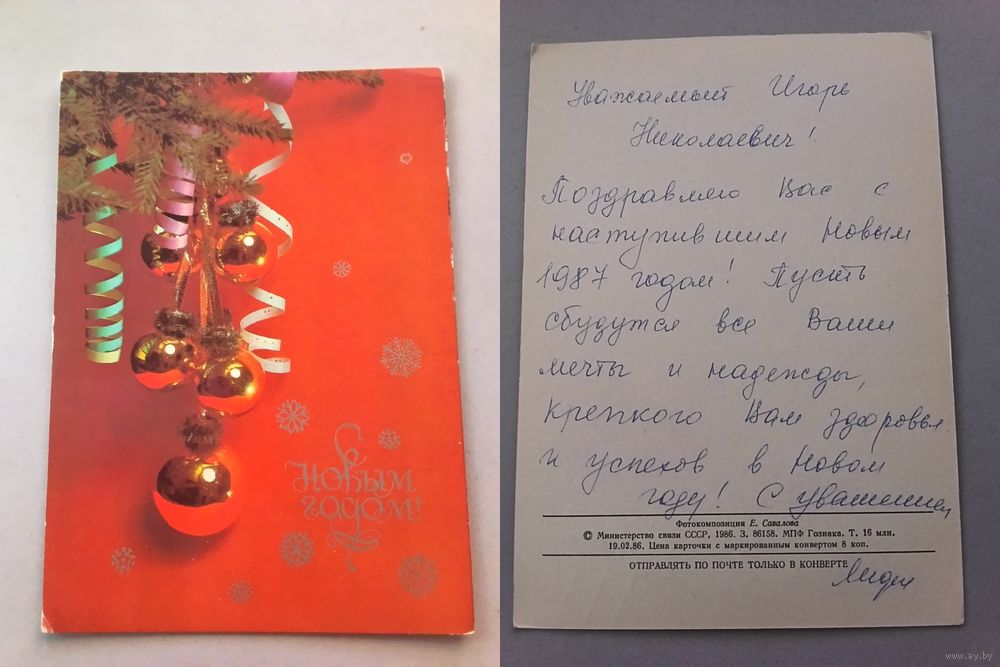 С
Новым
годом!
Уважаемый Игорь
Николаевич!
Поздравляю Вас с
наступившим Новым
1987 годом! Пусть
сбудутся все Ваши
мечты и надежды,
крепкого Вам здоровья
и успехов в Новом
году! С уважением
Фотокомпозиция Е. Савалова
© Министерство связи СССР, 1986. З. 86158. МПФ Гознака. Т. 16 млн.
19.02.86. Цена карточки с маркированным конвертом 8 коп.
ОТПРАВЛЯТЬ ПО ПОЧТЕ ТОЛЬКО В КОНВЕРТЕ
www.ay.by